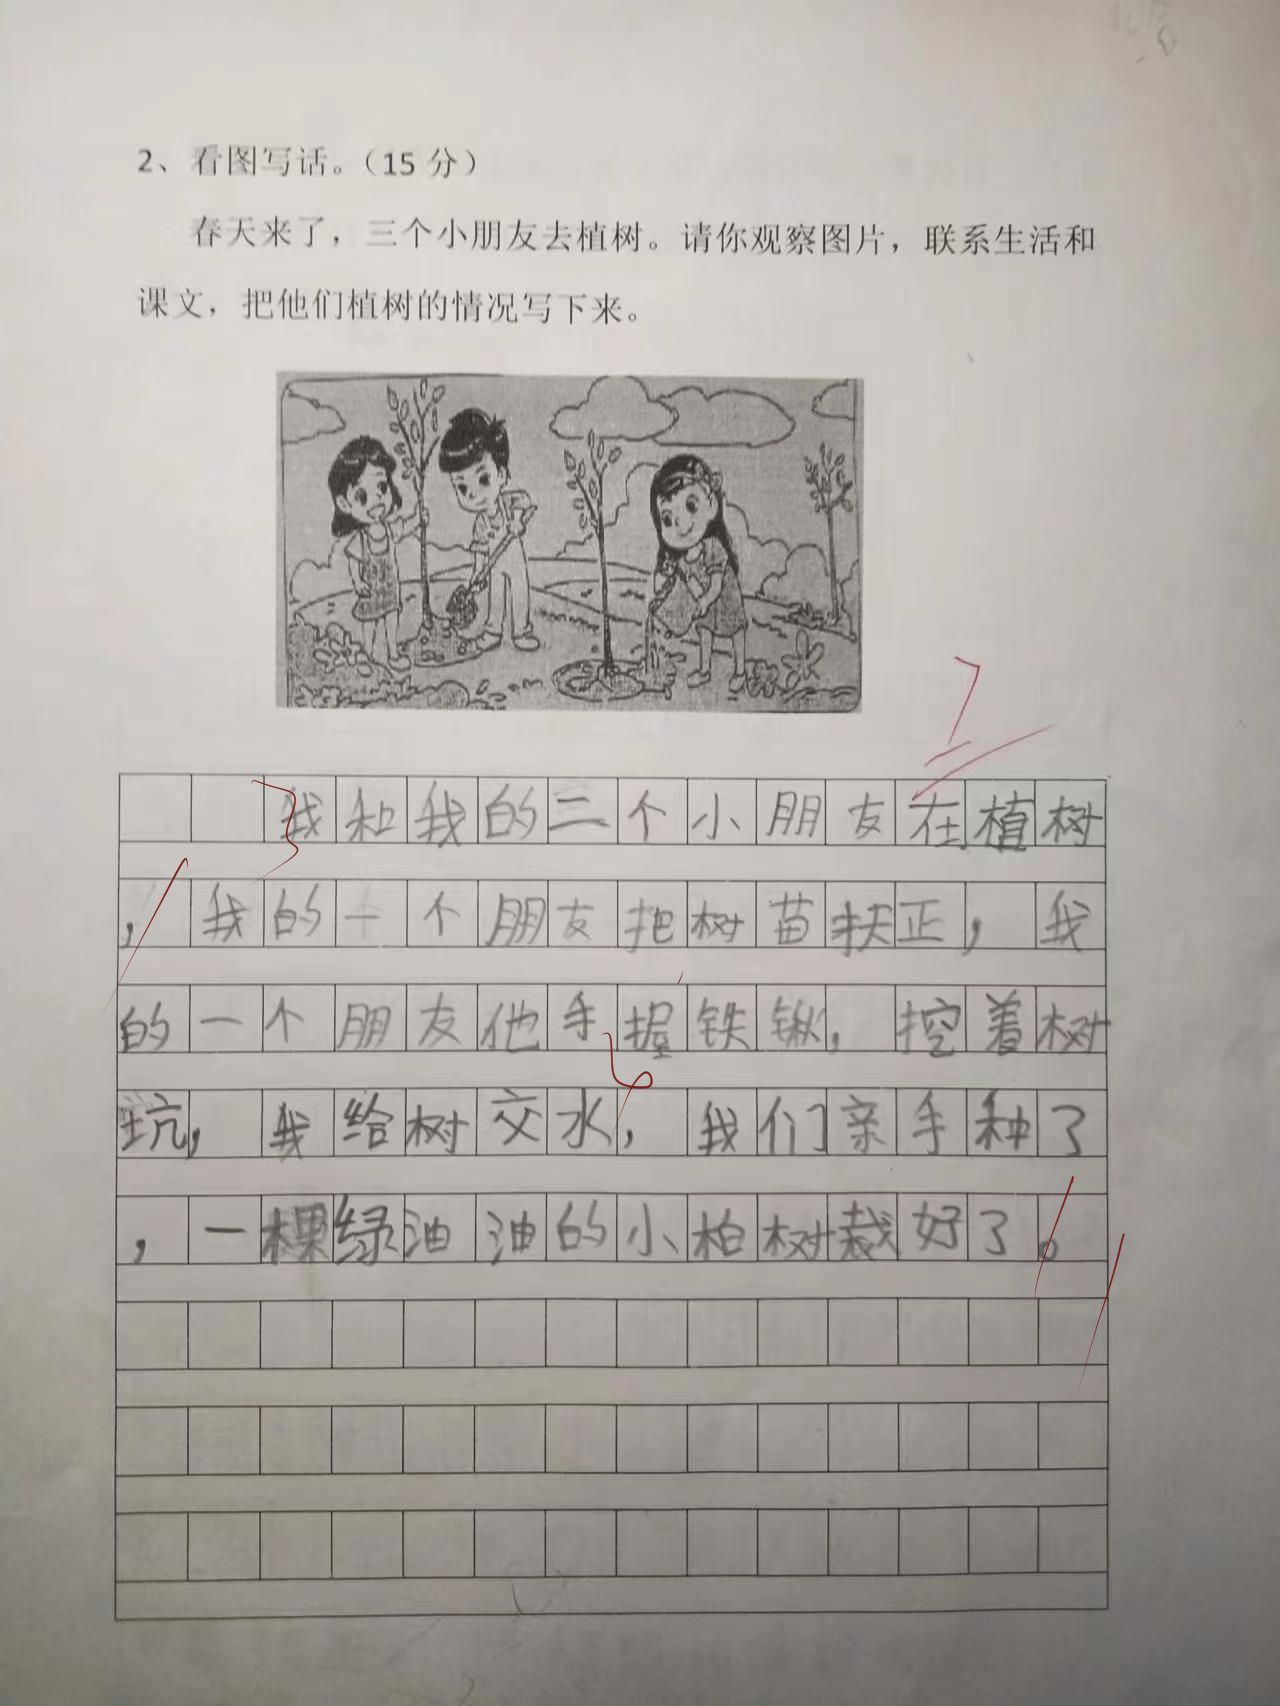 2、看图写话。（15 分）
春天来了，三个小朋友去植树。请你观察图片，联系生活和
课文，把他们植树的情况写下来。
7
我和我的二个小朋友在植树
，我的一个朋友把树苗扶正，我
的一个朋友他手握铁锹，挖着树
坑，我给树交水，我们亲手种了
，一棵绿油油的小柏树栽好了。